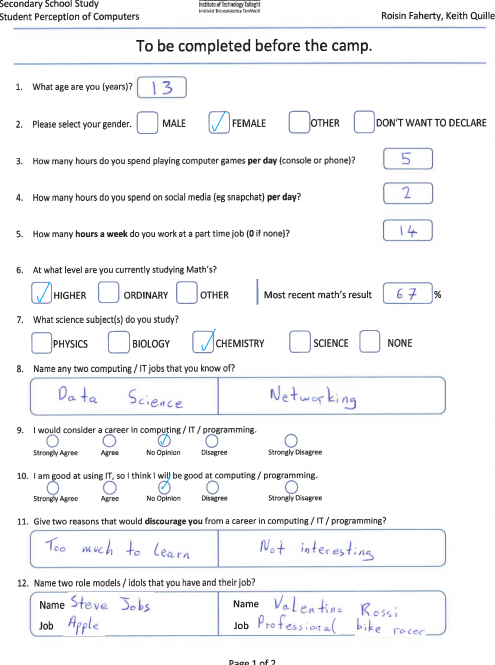 Secondary School Study
Student Perception of Computers
Institute of Technology Tallaght
Roisin Faherty, Keith Quille
To be completed before the camp.
1. What age are you (years)? 13
2. Please select your gender. MALE FEMALE OTHER DON'T WANT TO DECLARE
3. How many hours do you spend playing computer games per day (console or phone)? 5
4. How many hours do you spend on social media (eg snapchat) per day? 2
5. How many hours a week do you work at a part time job (0 if none)? 14
6. At what level are you currently studying Math's?
HIGHER ORDINARY OTHER Most recent math's result 67 %
7. What science subject(s) do you study?
PHYSICS BIOLOGY CHEMISTRY SCIENCE NONE
8. Name any two computing / IT jobs that you know of?
Data Science Networking
9. I would consider a career in computing / IT / programming.
Strongly Agree Agree No Opinion Disagree Strongly Disagree
10. I am good at using IT, so I think I will be good at computing / programming.
Strongly Agree Agree No Opinion Disagree Strongly Disagree
11. Give two reasons that would discourage you from a career in computing / IT / programming?
Too much to learn Not interesting
12. Name two role models / idols that you have and their job?
Name Steve Jobs Name Valentino Rossi
Job Apple Job Professional bike racer
Page 1 of 2